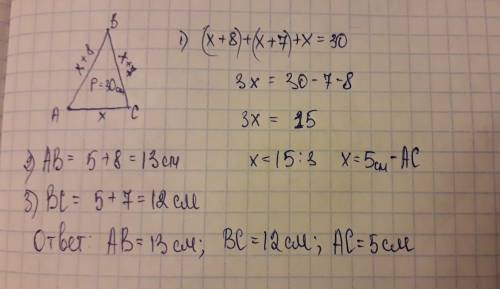 B
x+8
x+7
P=30см
A
x
C
1) (x+8)+(x+7)+x=30
3x = 30-7-8
3x = 15
x=15:3 x=5см-AC
2) AB = 5+8=13см
3) BC = 5+7=12см
Ответ: AB=13см; BC=12см; AC=5см